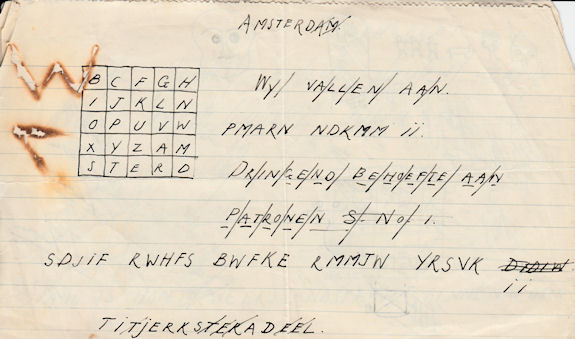 AMSTERDAM.
B C F G H
I J K L N
O P U V W
X Y Z A M
S T E R D
WY VALLEN AAN.
PMARN NDKMM ii.
DRINGEND BEHOEFTE AAN
PATRONEN S. NO 1.
SDJIF RWHFS BWFKE RMMJW YRSVK
ii
TITJERKSTEKADEEL.